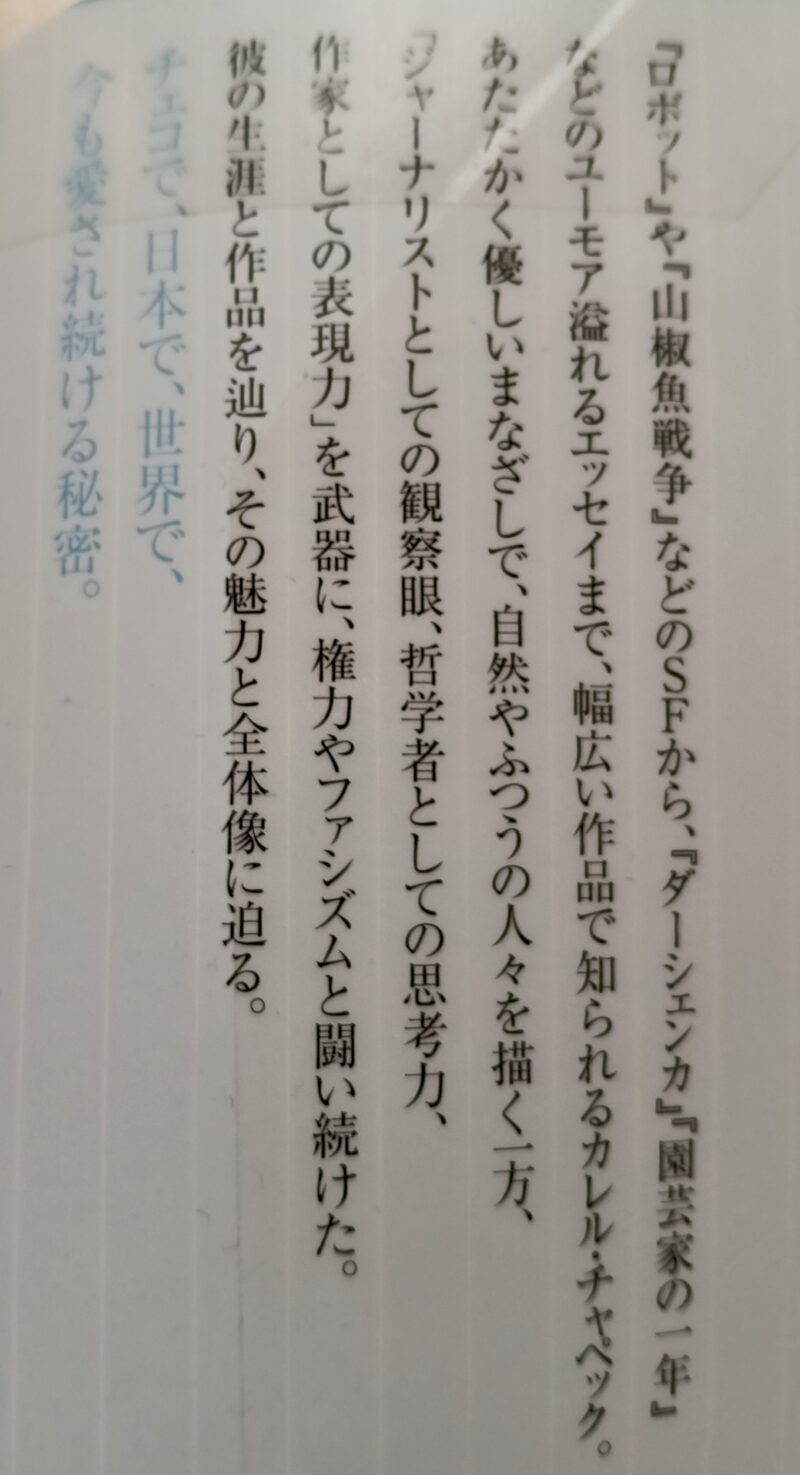 『ロボット』や『山椒魚戦争』などのSFから、『ダーシェンカ』『園芸家の一年』
などのユーモア溢れるエッセイまで、幅広い作品で知られるカレル・チャペック。
あたたかく優しいまなざしで、自然やふつうの人々を描く一方、
「ジャーナリストとしての観察眼、哲学者としての思考力、
作家としての表現力」を武器に、権力やファシズムと闘い続けた。
彼の生涯と作品を辿り、その魅力と全体像に迫る。
チェコで、日本で、世界で、
今も愛され続ける秘密。